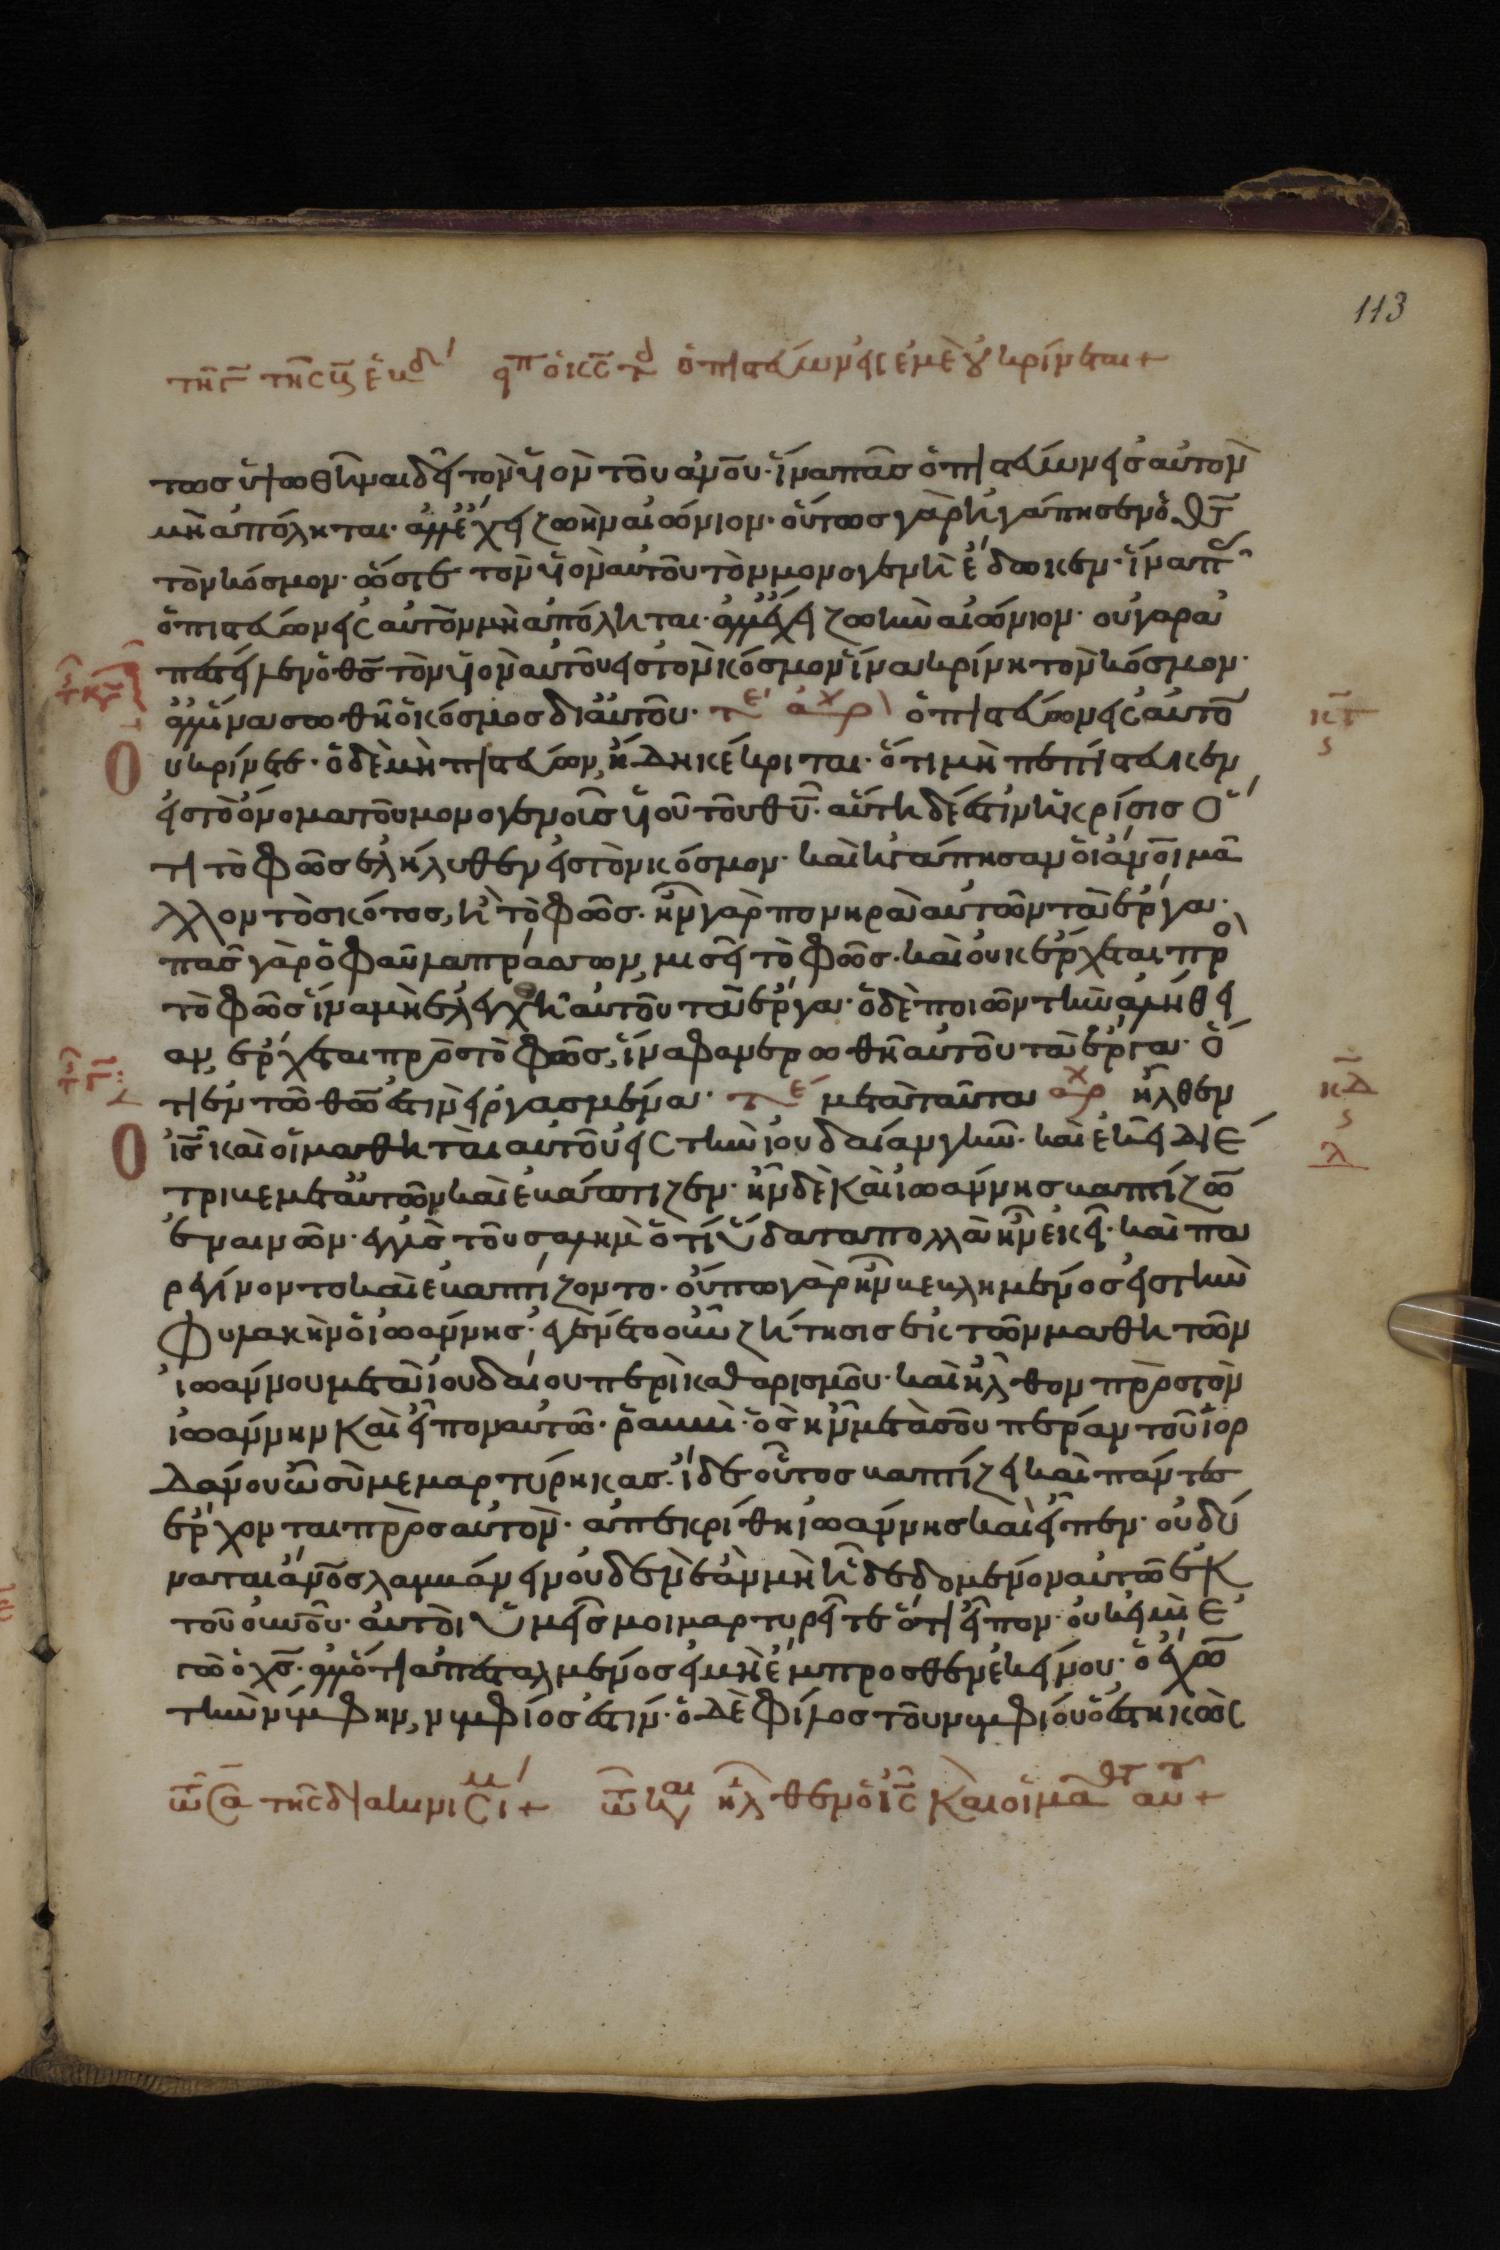 113
τωσ ὑψωθῆναι δεῖ τὸν υἱὸν τοῦ ἀνου· ἵνα πᾶσ ὁ πιστεύων εἰσ αὐτὸν
μὴ ἀπόληται· ἀλλ ἔχει ζωὴν αἰώνιον· οὕτωσ γὰρ ἠγάπησεν ὁ θσ
τὸν κόσμον· ὥστε τὸν υἱὸν αὐτοῦ τὸν μονογενῆ ἔδωκεν· ἵνα πᾶσ
ὁ πιστεύων εἰσ αὐτὸν μὴ ἀπόληται· ἀλλ ἔχει ζωὴν αἰώνιον· οὐ γὰρ ἀ
πέστειλεν ὁ θσ τὸν υἱὸν αὐτοῦ εἰσ τὸν κόσμον ἵνα κρίνη τὸν κόσμον·
ἀλλ ἵνα σωθῆ ὁ κόσμοσ δι αὐτοῦ· τε αρχ ὁ πιστεύων εἰσ αὐτὸ
κγ
ς
ὐ κρίνεται· ὁ δὲ μὴ πιστεύων, ἤδη κέκριται· ὅτι μὴ πεπίστευκεν
εἰσ τὸ ὄνομα τοῦ μονογενοῦσ υἱοῦ τοῦ θυ· αὕτη δέ ἐστιν ἡ κρίσισ ὅ
τι τὸ φῶσ ἐλήλυθεν εἰσ τὸν κόσμον· καὶ ἠγάπησαν οἱ ἀνοι μᾶ
λλον τὸ σκότοσ, ἢ τὸ φῶσ· ἦν γὰρ πονηρὰ αὐτῶν τὰ ἔργα·
πᾶσ γὰρ ὁ φαῦλα πράσσων, μισεῖ τὸ φῶσ· καὶ οὐκ ἔρχεται πρὸ
τὸ φῶσ ἵνα μὴ ἐλεγχθῆ αὐτοῦ τὰ ἔργα· ὁ δὲ ποιῶν τὴν ἀλήθει
αν, ἔρχεται πρὸσ τὸ φῶσ, ἵνα φανερωθῆ αὐτοῦ τὰ ἔργα· ὅ
τι ἐν τῶ θῶ ἐστὶν εἰργασμένα· τε μετὰ ταῦτα αρχ ἦλθεν
κδ
ς
λ
ὁ ισ καὶ οἱ μαθηταὶ αὐτοῦ εἰσ τὴν ἰουδαίαν γῆν· καὶ ἐκεῖ διέ
τριβε μετ αὐτῶν καὶ ἐβάπτιζεν· ἦν δὲ καὶ ἰωάννησ βαπτίζων
ἐν αἰνῶν· ἐγγὺσ τοῦ σαλὴμ ὅτι ὕδατα πολλὰ ἦν ἐκεῖ· καὶ πα
ρεγίνοντο καὶ ἐβαπτίζοντο· οὔπω γὰρ ἦν βεβλημένοσ εἰσ τὴν
φυλακὴν ὁ ἰωάννησ· ἐγένετο οὖν ζήτησισ ἐκ τῶν μαθητῶν
ἰωάννου μετὰ ἰουδαίου περὶ καθαρισμοῦ· καὶ ἦλθον πρὸσ τὸν
ἰωάννην καὶ εἶπον αὐτῶ· ῥαββὶ· ὃσ ἦν μετὰ σοῦ πέραν τοῦ ἰορ
δάνου ὧ σὺ μεμαρτύρηκασ· ἴδε οὗτοσ βαπτίζει καὶ πάντεσ
ἔρχονται πρὸσ αὐτὸν· ἀπεκρίθη ἰωάννησ καὶ εἶπεν· οὐ δύ
ναται ἀνοσ λαμβάνειν οὐδὲν ἐὰν μὴ ἦ δεδομένον αὐτῶ ἐκ
τοῦ οὐνοῦ· αὐτοὶ ὑμεῖσ μοι μαρτυρεῖτε ὅτι εἶπον· οὐκ εἰμὶ ἐ
γὼ ὁ χσ· ἀλλ ὅτι ἀπεσταλμένοσ εἰμὶ ἔμπροσθεν ἐκείνου· ὁ ἔχων
τὴν νύμφην, νυμφίοσ ἐστίν· ὁ δὲ φίλοσ τοῦ νυμφίου ὁ ἑστηκὼσ
ἦλθεν ὁ ισ καὶ οἱ μαθτ αυ +